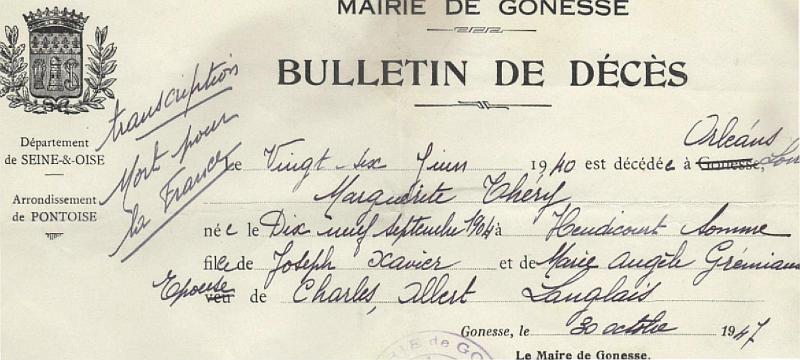 MAIRIE DE GONESSE
BULLETIN DE DÉCÈS
Département
de SEINE-&-OISE
Arrondissement
de PONTOISE
transcription
Mort pour
la France
Orléans
Le Vingt-six Juin 1940 est décédée à Gonesse,
Marguerite Théry
née le Dix neuf Septembre 1904 à Heudicourt Somme
fille de Joseph Xavier et de Marie Angèle
Epouse
veu de Charles, Albert Langlais
Gonesse, le 30 octobre 1947
MAIRIE de GO
Le Maire de Gonesse.